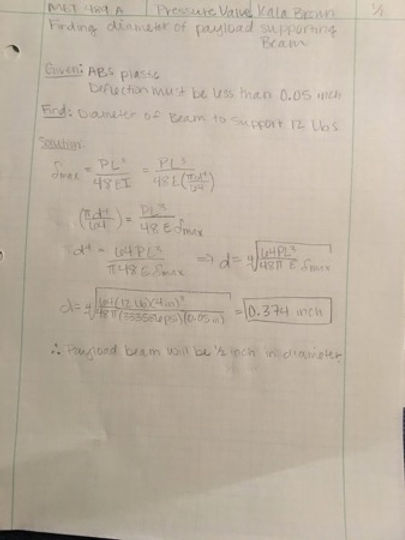 MET 489 A Pressure Valve Kala Brown 1/1
Finding diameter of payload supporting
Beam
Given: ABS plastic
Deflection must be less than 0.05 inch
Find: Diameter of Beam to support 12 Lbs
Solution:
δmax = PL³/48EI = PL³/48E(πd⁴/64)
(πd⁴/64) = PL³/48 E δmax
d⁴ = 64PL³/π48 E δmax ⇒ d = ⁴√(64PL³/48π E δmax)
d = ⁴√(64(12 lb)(4in)³/48π( psi)(0.05in)) = 0.374 inch
∴ Payload beam will be ½ inch in diameter